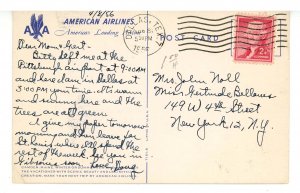 4/8/56
AMERICAN AIRLINES
AA
America's Leading Airline
DALLAS, TEX.
1956
POST CARD
2¢
Dear Mom & Gert.
Bitts left me at the
Pittsburgh air port at 9:00AM
and here I am in Dallas at
3:40 PM your time. It's warm
and sunny here and the
trees are all green.
I give my paper tomorrow
morning and then leave for
St. Louis where I'll spend the
rest of the week. See you
soon. Love,
Mrs John Noll
Miss Gertrude Bellows
149 W 4th Street
New York 12, N.Y.